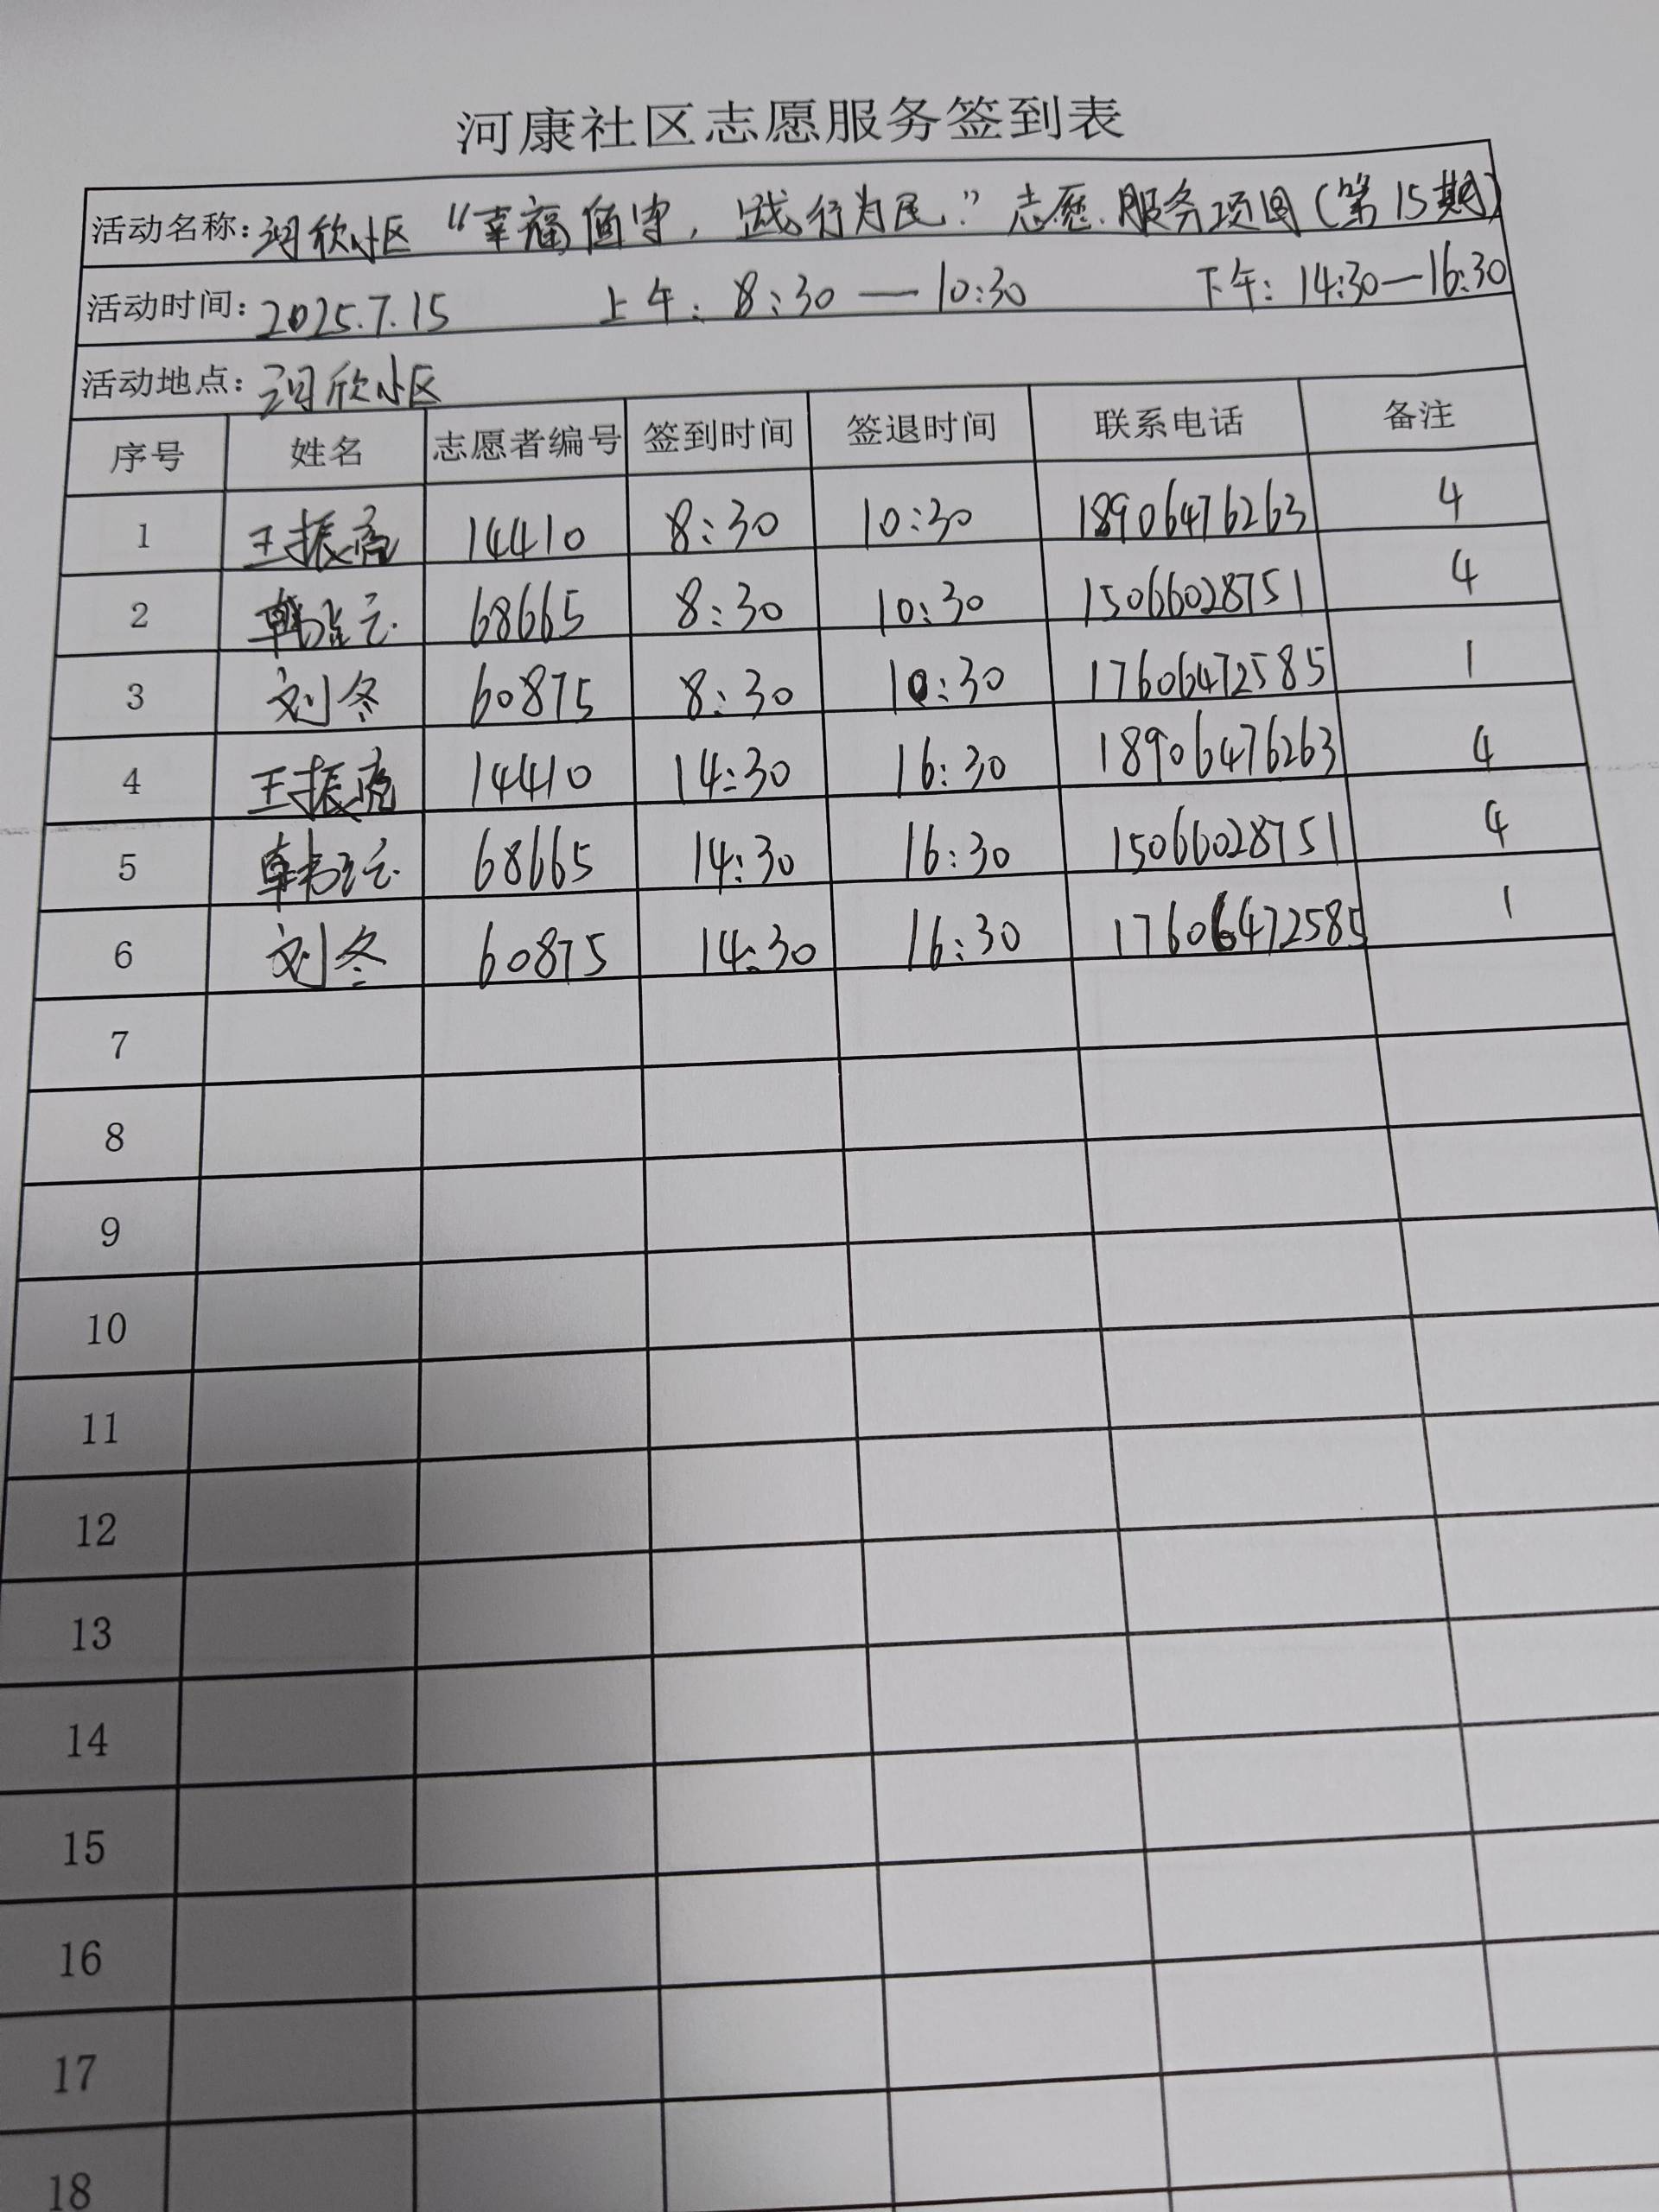 河康社区志愿服务签到表
活动名称:河欣小区“幸福值守,践行为民”志愿服务项目(第15期)
活动时间:2025.7.15 上午:8:30—10:30 下午:14:30—16:30
活动地点:河欣小区
序号 姓名 志愿者编号 签到时间 签退时间 联系电话 备注
1 王振亮 14410 8:30 10:30 18906476263 4
2 68665 8:30 10:30 15066028751 4
3 刘冬 60875 8:30 10:30 17606472585 1
4 王振亮 14410 14:30 16:30 18906476263 4
5 68665 14:30 16:30 15066028751 4
6 刘冬 60875 14:30 16:30 17606472585 1
7
8
9
10
11
12
13
14
15
16
17
18